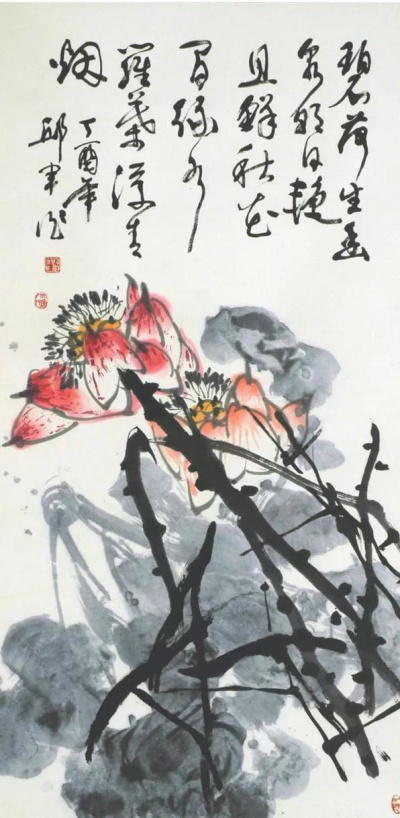 碧荷生幽
泉朝日艳
且鲜秋花
冒绿水
羅葉浮青
烟
丁酉年
邱軍作